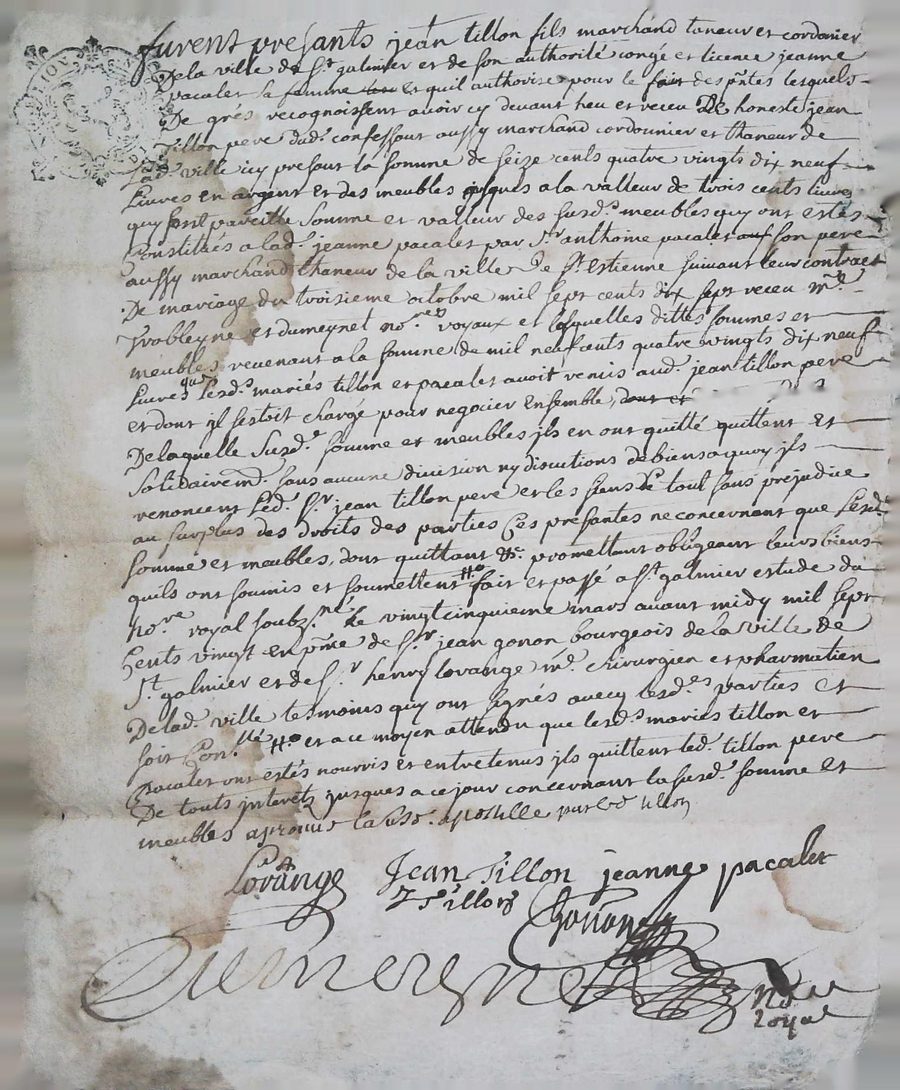 furent presants jean tillon fils marchand taneur et cordonier
De la ville de St galmier et de son authorité congé et licence jeanne
pacalet sa femme et quil authorise pour le fait des pntes lesquels
De grés recognoissent avoir cy devant heu et receu De honeste jean
Tillon pere dud. confessant aussy marchand cordonnier et thaneur de
Lad. ville icy presant la somme de seize cents quatre vingts dix neuf
Livres en argent et des meubles jusques a la valleur de trois cents livres
quy font pareille somme et valleur des susd.s meubles quy ont estés
Constitués a lad. jeanne pacalet par Sr anthoine pacalet son pere
aussy marchand thaneur de la ville De St Estienne suivant leur contract
De mariage du troisieme octobre mil sept cents dix sept receu me.
et dumeynet no.res royaux et lesquelles dittes sommes et
meubles revenant a la somme de mil neuf cents quatre vingts dix neuf
Livres que Lesd.s mariés tillon et pacalet avoit remis aud. jean tillon pere
et dont jl sestoit chargé pour negocier Ensemble, dont et
De laquelle susd.e somme et meubles jls en ont quitté quittent et
solidairemt. sans aucune division ny discutions de biens a quoy jls
renoncent Led. Sr. jean tillon pere et les siens Le tout sans prejudice
au surplus des droits des parties Ces presantes ne concernant que Lesd.
somme et meubles, dont quittant &c. promettant obligeant leurs biens
quils ont soumis et soumettent fait et passé a St. galmier estude du
no.re royal soubz.né Le vingt cinquieme mars avant midy mil sept
Cents vingt en pnce de Sr. jean gonon bourgeois de la ville de
St. galmier et de Sr. henry lovange me. chirurgien et pharmatien
De lad. ville tesmoins quy ont signés avecq lesd.es parties et
soit Con.llé et a ce moyen attendu que lesd.s mariés tillon et
pacalet ont estés nourris et entretenus jls quittent led. tillon pere
De touts interets jusques a ce jour concernant la susd. somme et
meubles aprouvé la susd. apostille par led tillon
Lovange Jean Tillon jeanne pacalet
J Tillon Gonon
Dumeynet no.re
royal